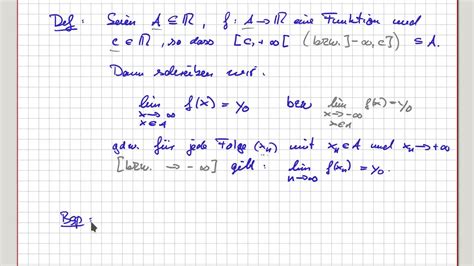 Def: Seien A ⊆ ℝ, f: A → ℝ eine Funktion und
c ∈ ℝ, so dass [c, +∞[ (bzw. ]-∞, c]) ⊆ A.
Dann schreiben wir
lim f(x) = y₀ bzw lim f(x) = y₀
x→∞ x→-∞
x∈A x∈A
gdw. für jede Folge (xₙ) mit xₙ ∈ A und xₙ → +∞
[bzw. → -∞] gilt: lim f(xₙ) = y₀.
n→∞
Bsp: